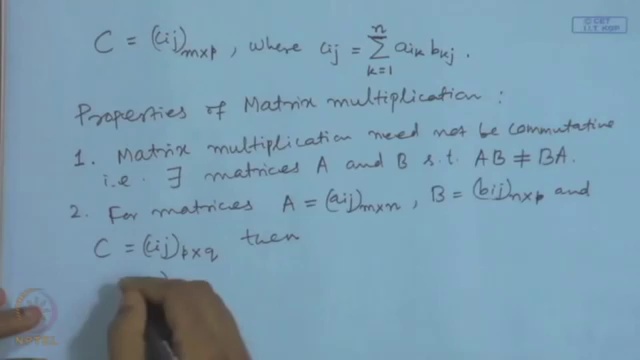 © CET
I.I.T. KGP
C = (cij)m×p , where cij = n∑k=1 aik bkj .
Properties of Matrix multiplication :
1. Matrix multiplication need not be commutative
i.e. ∃ matrices A and B s.t. AB ≠ BA.
2. For matrices A = (aij)m×n , B = (bij)n×p and
C = (cij)p×q then
NPTEL